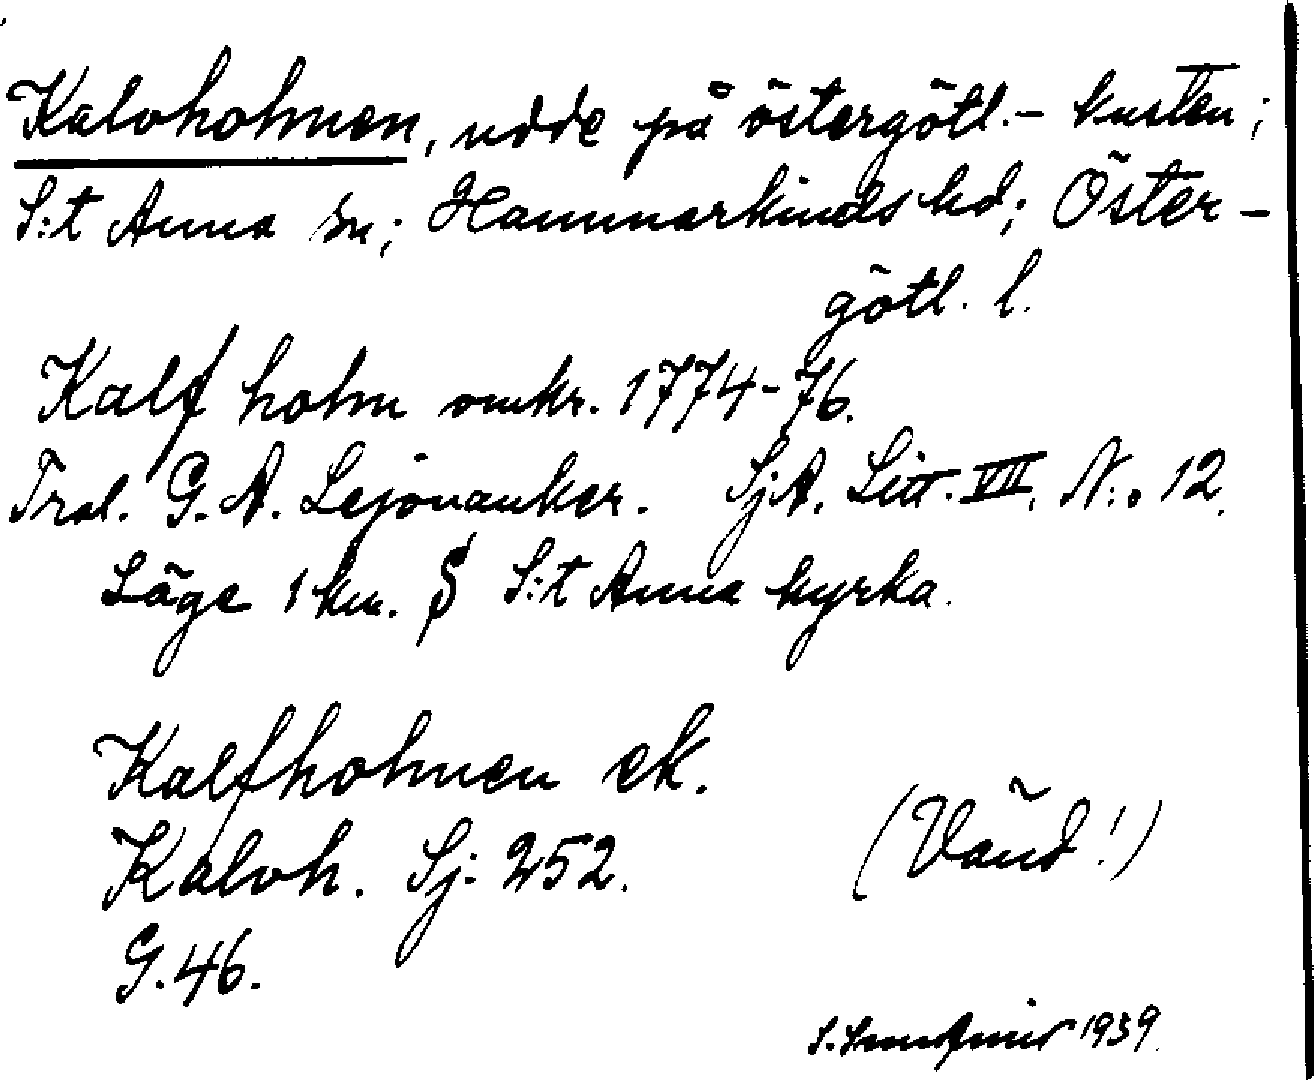 Kalvholmen, udde på östergötl.- kusten;
S:t Anna sn; Hammarkinds hd; Öster-
götl. l.
Kalf holm omkr. 1774-76.
Trol. G. A. Lejonanker. SjA. Litt. VII. N:o 12.
Läge 1 km. S S:t Anna kyrka.
Kalfholmen ek.
Kalvh. Sj: 252.
G. 46.
(Vänd!)
S. 1939.